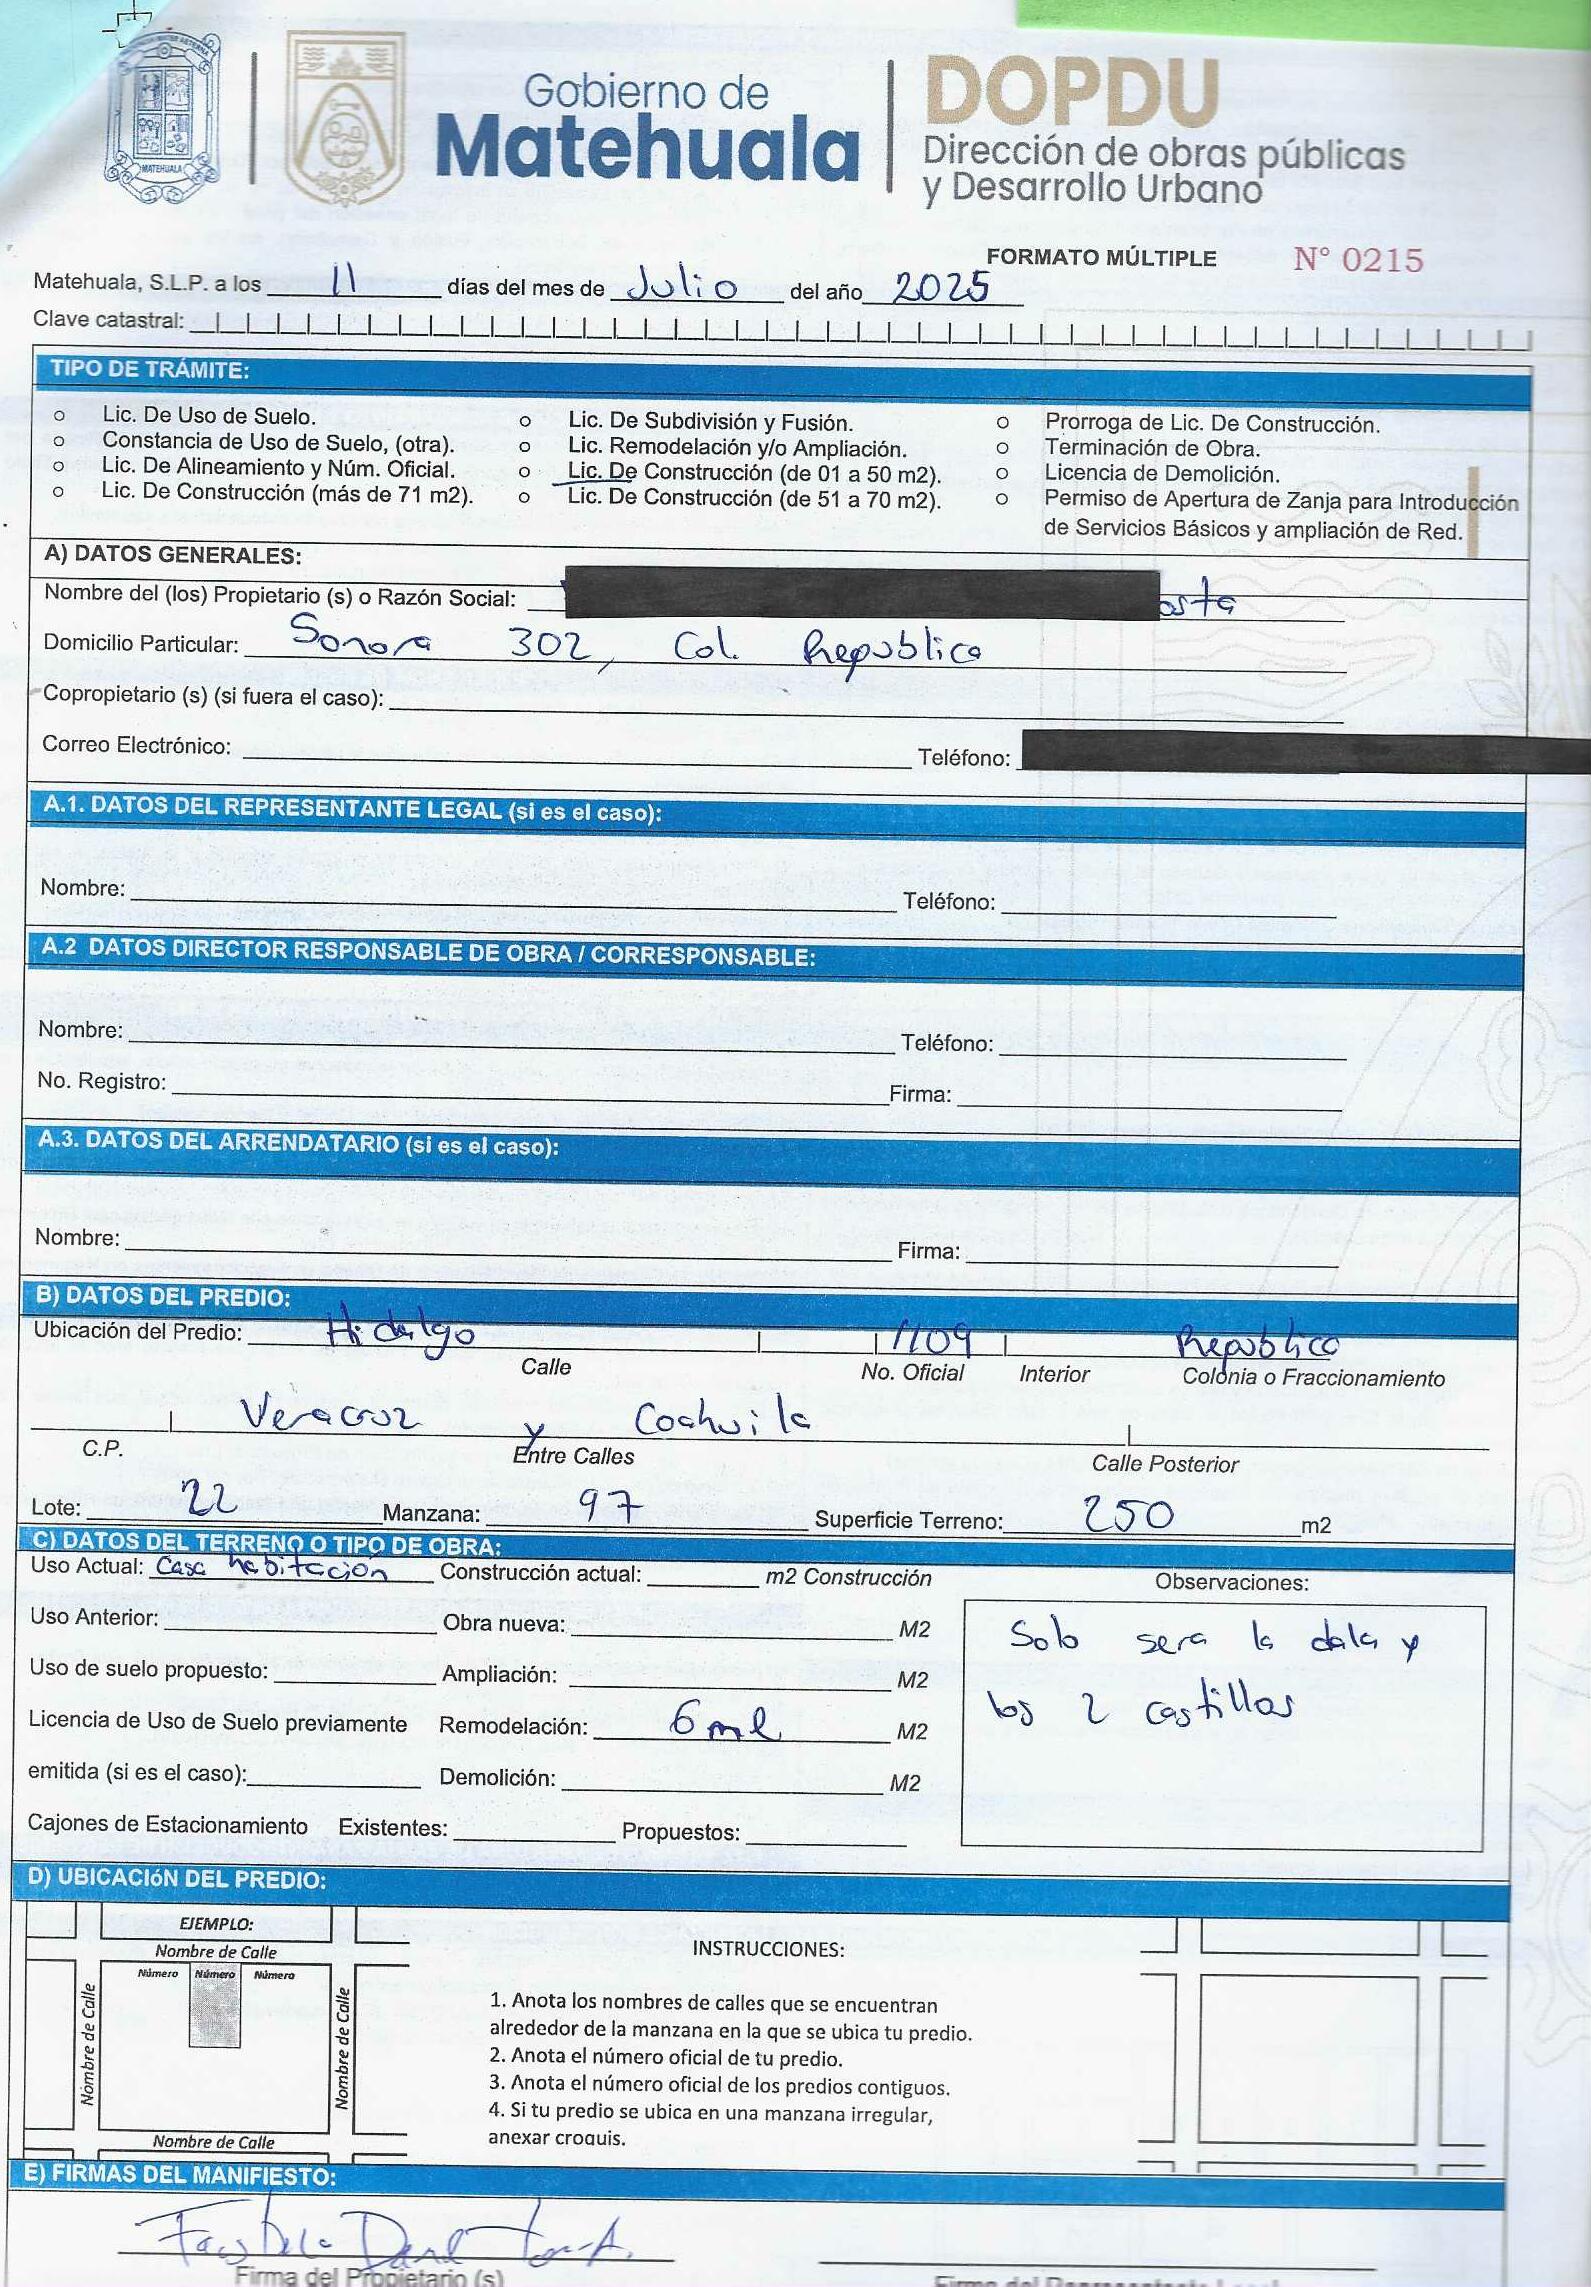 MATEHUALA
Gobierno de
Matehuala
DOPDU
Dirección de obras públicas
y Desarrollo Urbano
FORMATO MÚLTIPLE N° 0215
Matehuala, S.L.P. a los 11 días del mes de Julio del año 2025
Clave catastral:
TIPO DE TRÁMITE:
Lic. De Uso de Suelo.
Constancia de Uso de Suelo, (otra).
Lic. De Alineamiento y Núm. Oficial.
Lic. De Construcción (más de 71 m2).
Lic. De Subdivisión y Fusión.
Lic. Remodelación y/o Ampliación.
Lic. De Construcción (de 01 a 50 m2).
Lic. De Construcción (de 51 a 70 m2).
Prorroga de Lic. De Construcción.
Terminación de Obra.
Licencia de Demolición.
Permiso de Apertura de Zanja para Introducción
de Servicios Básicos y ampliación de Red.
A) DATOS GENERALES:
Nombre del (los) Propietario (s) o Razón Social:
Domicilio Particular: Sonora 302, Col. Republica
Copropietario (s) (si fuera el caso):
Correo Electrónico: Teléfono:
A.1. DATOS DEL REPRESENTANTE LEGAL (si es el caso):
Nombre: Teléfono:
A.2 DATOS DIRECTOR RESPONSABLE DE OBRA / CORRESPONSABLE:
Nombre: Teléfono:
No. Registro: Firma:
A.3. DATOS DEL ARRENDATARIO (si es el caso):
Nombre: Firma:
B) DATOS DEL PREDIO:
Ubicación del Predio: Hidalgo 1109 Republica
Calle No. Oficial Interior Colonia o Fraccionamiento
Veracruz y Coahuila
C.P. Entre Calles Calle Posterior
Lote: 22 Manzana: 97 Superficie Terreno: 250 m2
C) DATOS DEL TERRENO O TIPO DE OBRA:
Uso Actual: Casa habitación Construcción actual: m2 Construcción Observaciones:
Uso Anterior: Obra nueva: M2
Uso de suelo propuesto: Ampliación: M2
Licencia de Uso de Suelo previamente Remodelación: 6 ml M2
emitida (si es el caso): Demolición: M2
Cajones de Estacionamiento Existentes: Propuestos:
Solo sera la dala y
los 2 castillos
D) UBICACIóN DEL PREDIO:
EJEMPLO:
Nombre de Calle
Número Número Número
Nombre de Calle
Nombre de Calle
Nombre de Calle
INSTRUCCIONES:
1. Anota los nombres de calles que se encuentran
alrededor de la manzana en la que se ubica tu predio.
2. Anota el número oficial de tu predio.
3. Anota el número oficial de los predios contiguos.
4. Si tu predio se ubica en una manzana irregular,
anexar croquis.
E) FIRMAS DEL MANIFIESTO:
Firma del Propietario (s)